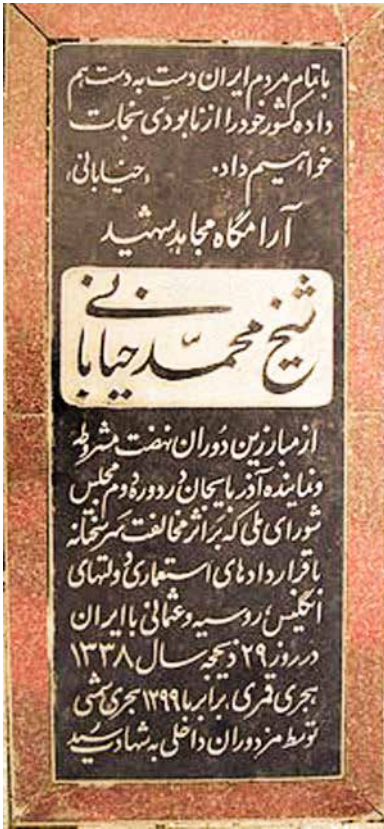 با تمام مردم ایران دست به دست هم
داده کشور خود را از نابودی نجات
خواهیم داد. «خیابانی»
آرامگاه مجاهد شهید
شیخ محمد خیابانی
از مبارزین دوران نهضت مشروطه
و نماینده آذربایجان در دوره دوم مجلس
شورای ملی که بر اثر مخالفت سرسختانه
با قراردادهای استعماری دولتهای
انگلیس، روسیه و عثمانی با ایران
در روز ۲۹ ذیحجه سال ۱۳۳۸
هجری قمری برابر با ۱۲۹۹ هجری شمسی
توسط مزدوران داخلی به شهادت رسید